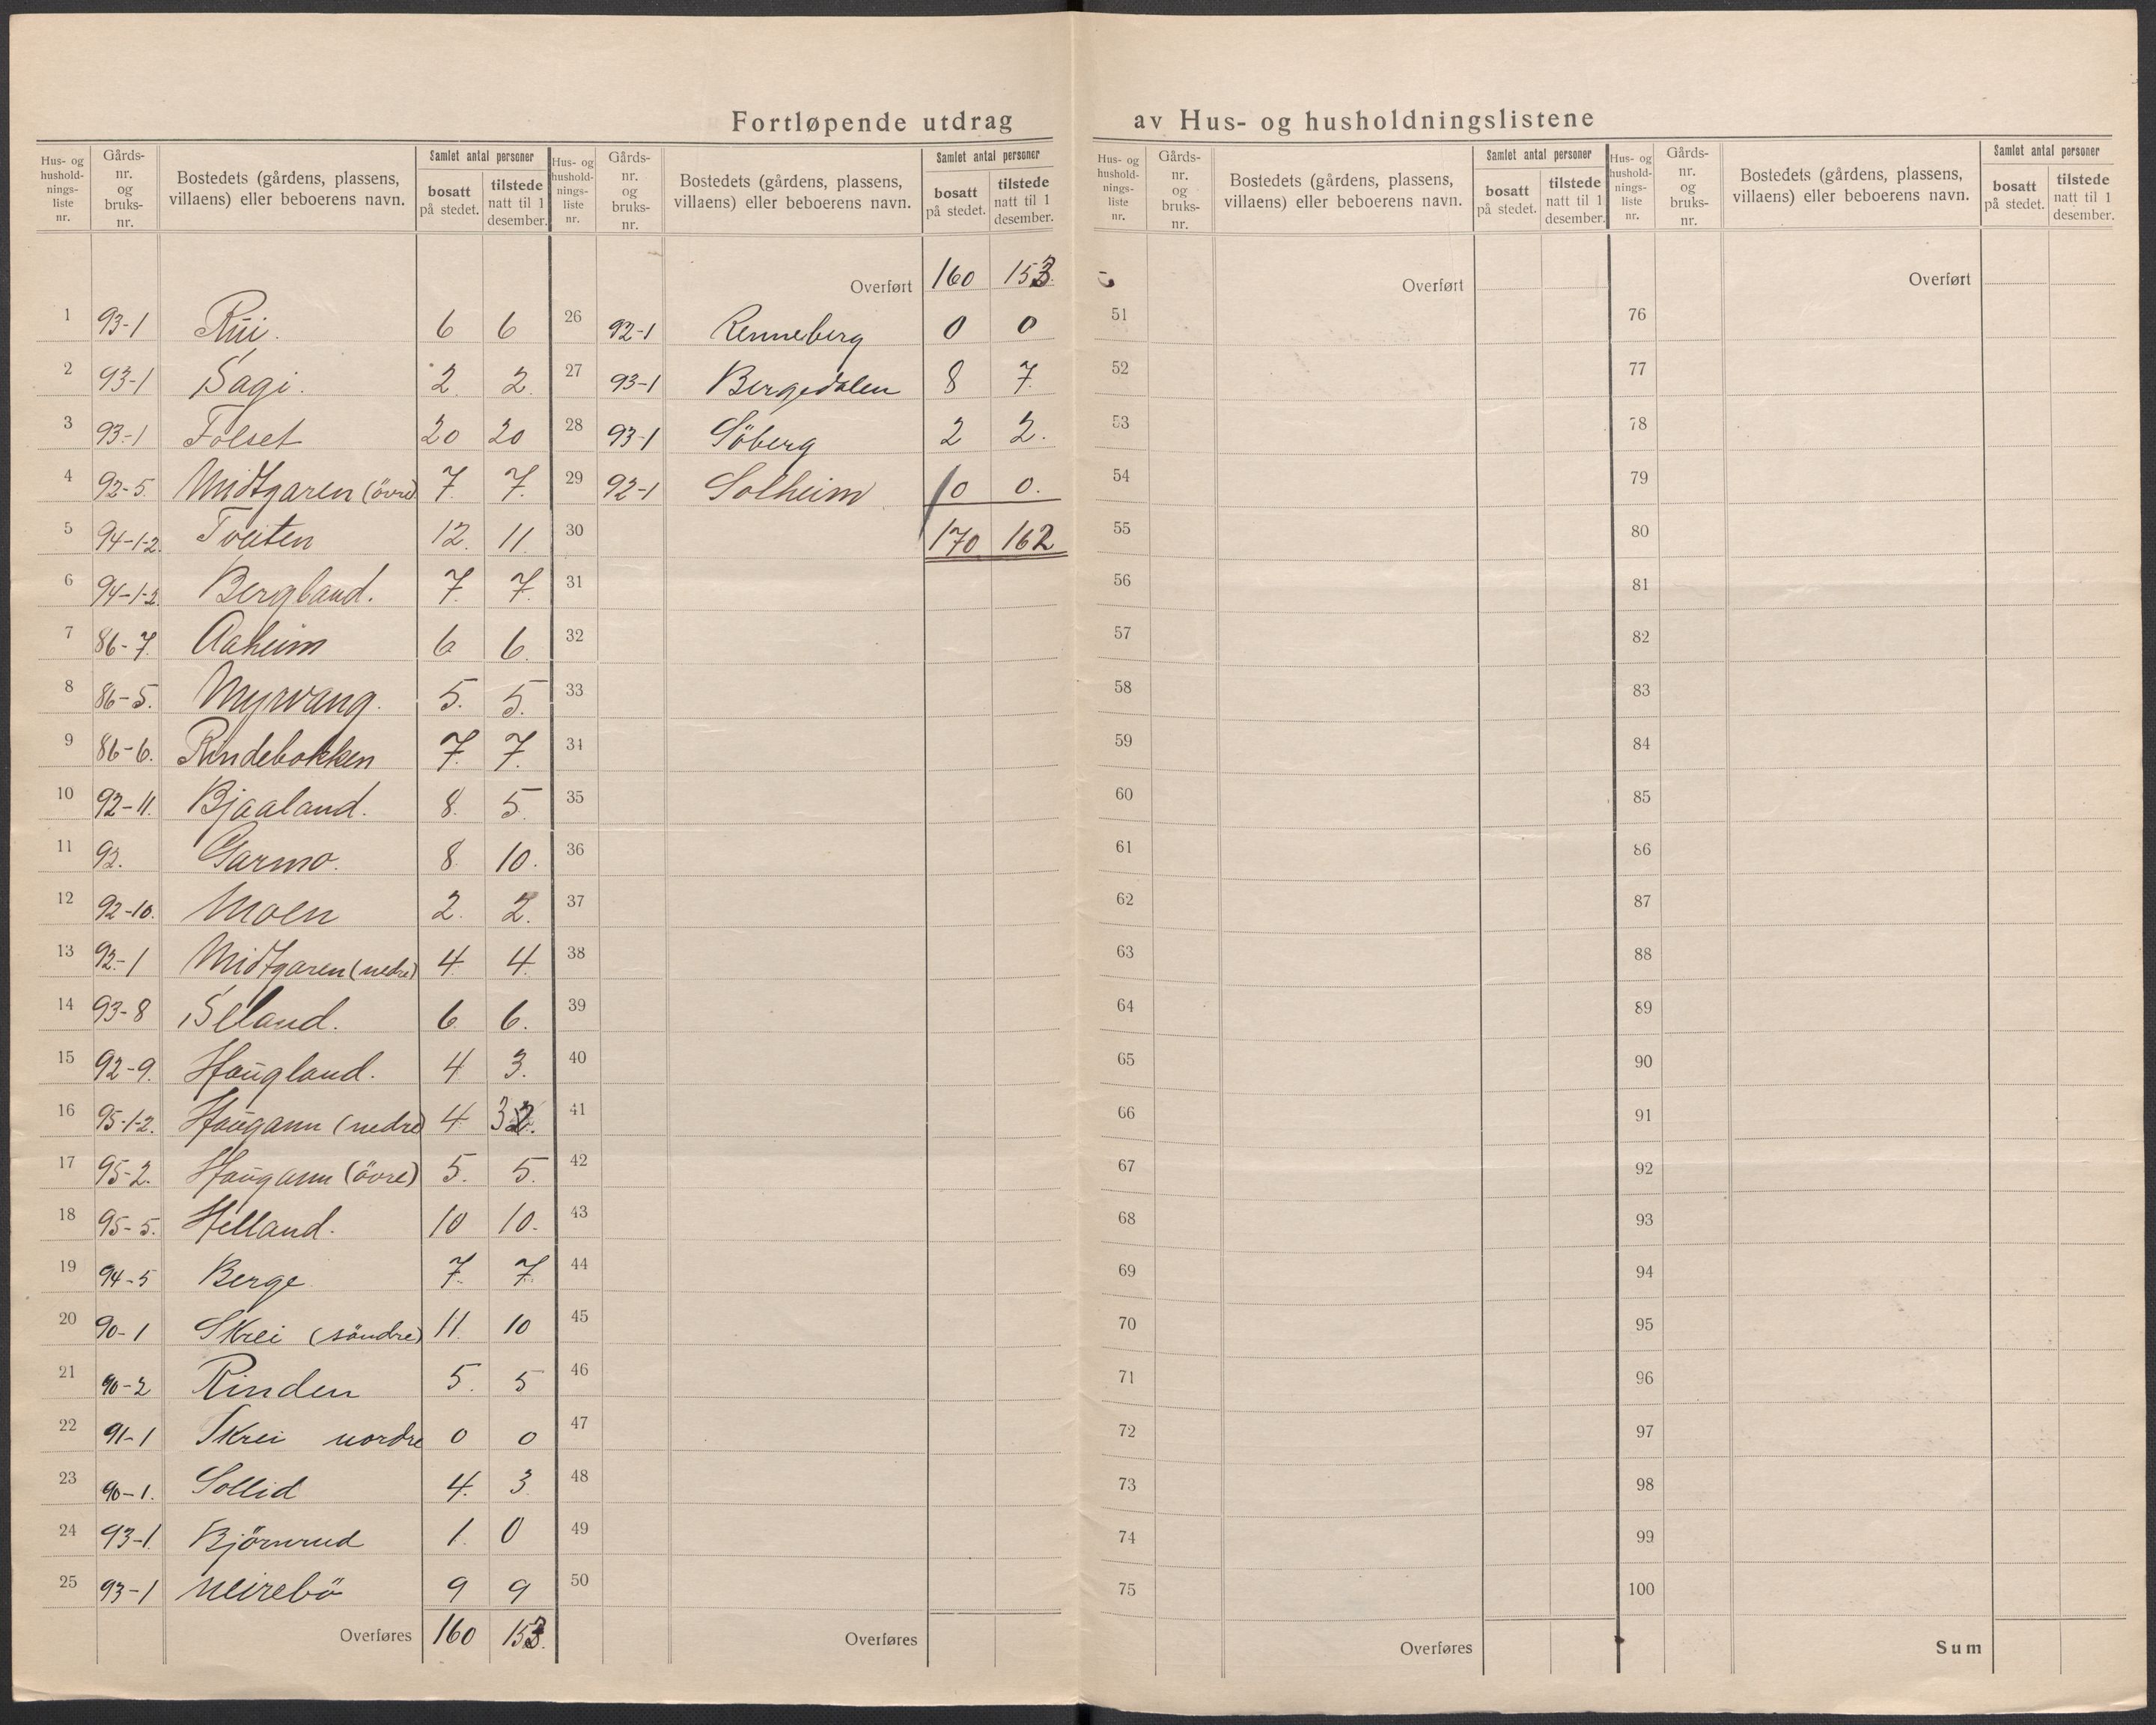 Fortløpende utdrag av Hus- og husholdningslistene
Hus- og husholdnings-liste nr. | Gårds-nr. og bruks-nr. | Bostedets (gårdens, plassens, villaens) eller beboerens navn. | Samlet antal personer | bosatt på stedet. | tilstede natt til 1 desember.
1 93-1 Rui. 6 6
2 93-1 Sagi. 2. 2.
3 93-1 Folset 20 20
4 92-5. Midtgaren (övre) 7. 7.
5 94-1-2. Tveiten 12. 11.
6 94-1-2. Bergland. 7. 7.
7 86-7. Aaheim 6 6.
8 86-5. Myrvang. 5. 5.
9 86-6. Rindebakken 7. 7.
10 92-11. Bjaaland. 8. 5.
11 92. Garmo. 8. 10.
12 92-10. Moen 2. 2.
13 92-1 Midtgaren (nedre) 4. 4.
14 93-8 Seland. 6 6.
15 92-9. Haugland. 4 3.
16 95-1-2. Haugann (nedre) 4 3
17 95-2. Haugann (övre) 5. 5.
18 95-5. Helland. 10 10.
19 94-5 Berge 7. 7.
20 90-1 Skrei (söndre) 11. 10
21 90-2 Rinden 5. 5
22 91-1 Skrei nordre 0 0
23 90-1. Sollid 4. 3
24 93-1. Björnrud 1. 0
25 93-1 Meirebö 9 9
Overføres 160 153.
Hus- og husholdnings-liste nr. | Gårds-nr. og bruks-nr. | Bostedets (gårdens, plassens, villaens) eller beboerens navn. | Samlet antal personer | bosatt på stedet. | tilstede natt til 1 desember.
Overført 160 153.
26 92-1 Renneberg 0 0
27 93-1 Bergedalen 8 7.
28 93-1 Söberg 2 2.
29 92-1 Solheim 0 0.
30 170 162
31
32
33
34
35
36
37
38
39
40
41
42
43
44
45
46
47
48
49
50
Overføres
Hus- og husholdnings-liste nr. | Gårds-nr. og bruks-nr. | Bostedets (gårdens, plassens, villaens) eller beboerens navn. | Samlet antal personer | bosatt på stedet. | tilstede natt til 1 desember.
Overført
51
52
53
54
55
56
57
58
59
60
61
62
63
64
65
66
67
68
69
70
71
72
73
74
75
Overføres
Hus- og husholdnings-liste nr. | Gårds-nr. og bruks-nr. | Bostedets (gårdens, plassens, villaens) eller beboerens navn. | Samlet antal personer | bosatt på stedet. | tilstede natt til 1 desember.
Overført
76
77
78
79
80
81
82
83
84
85
86
87
88
89
90
91
92
93
94
95
96
97
98
99
100
Sum